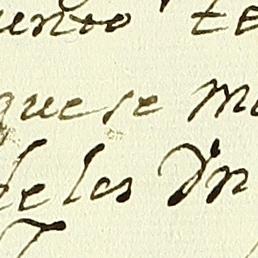 ento te
que se m
de los Dn